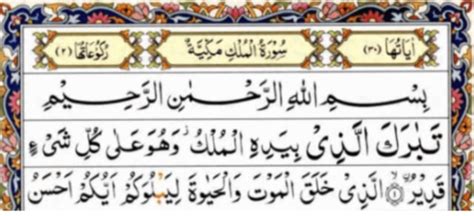 اٰيَاتُهَا (٣٠) سُوْرَةُ الْمُلْكِ مَكِّيَّةٌ رُكُوْعَاتُهَا (٢)
بِسْمِ اللهِ الرَّحْمٰنِ الرَّحِيْمِ
تَبٰرَكَ الَّذِىْ بِيَدِهِ الْمُلْكُ ۫ وَهُوَ عَلٰى كُلِّ شَىْءٍ
قَدِيْرُ ۙ ﴿١﴾ اۨلَّذِىْ خَلَقَ الْمَوْتَ وَالْحَيٰوةَ لِيَبْلُوَكُمْ اَيُّكُمْ اَحْسَنُ